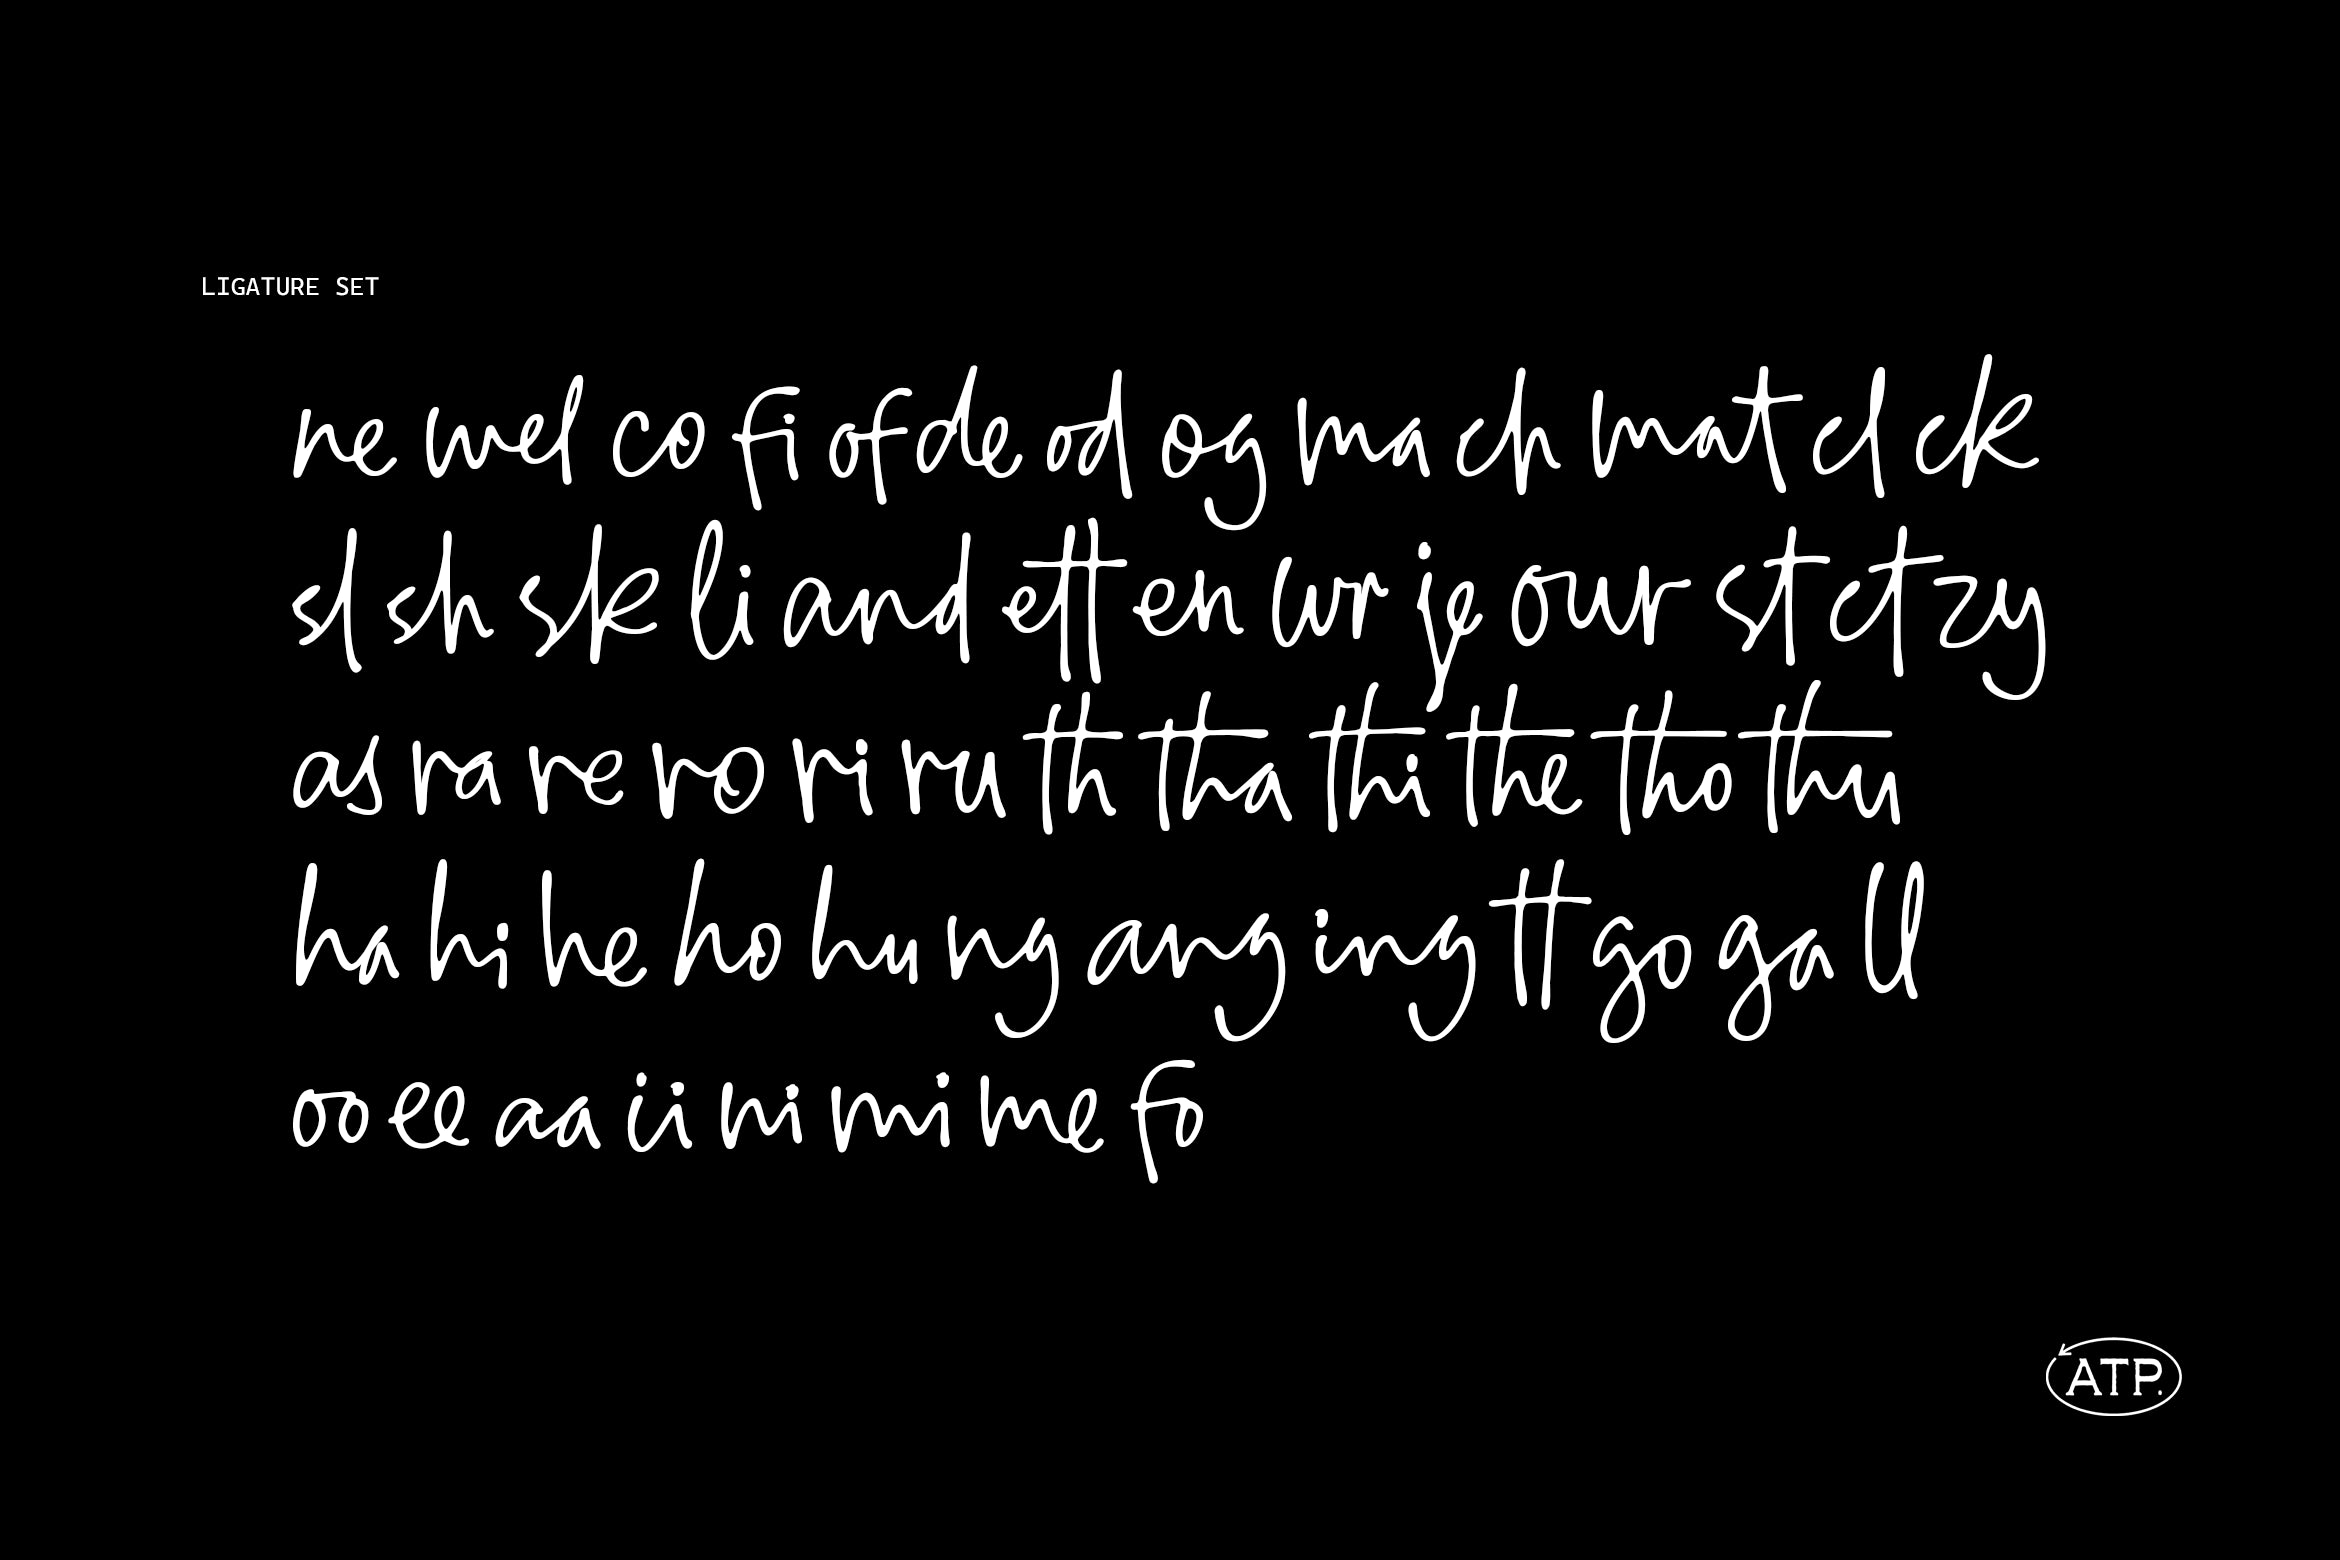 LIGATURE SET
ne wel co fi of de ad og ma ch mat cl ck
sl sh sk li and ett en ur je our st ct zy
as ra re ro ri ru th tha thi the tho thu
ha hi he ho hu ng ang ing tt go ga ll
oo ee aa ii ni mi me fo
ATP.